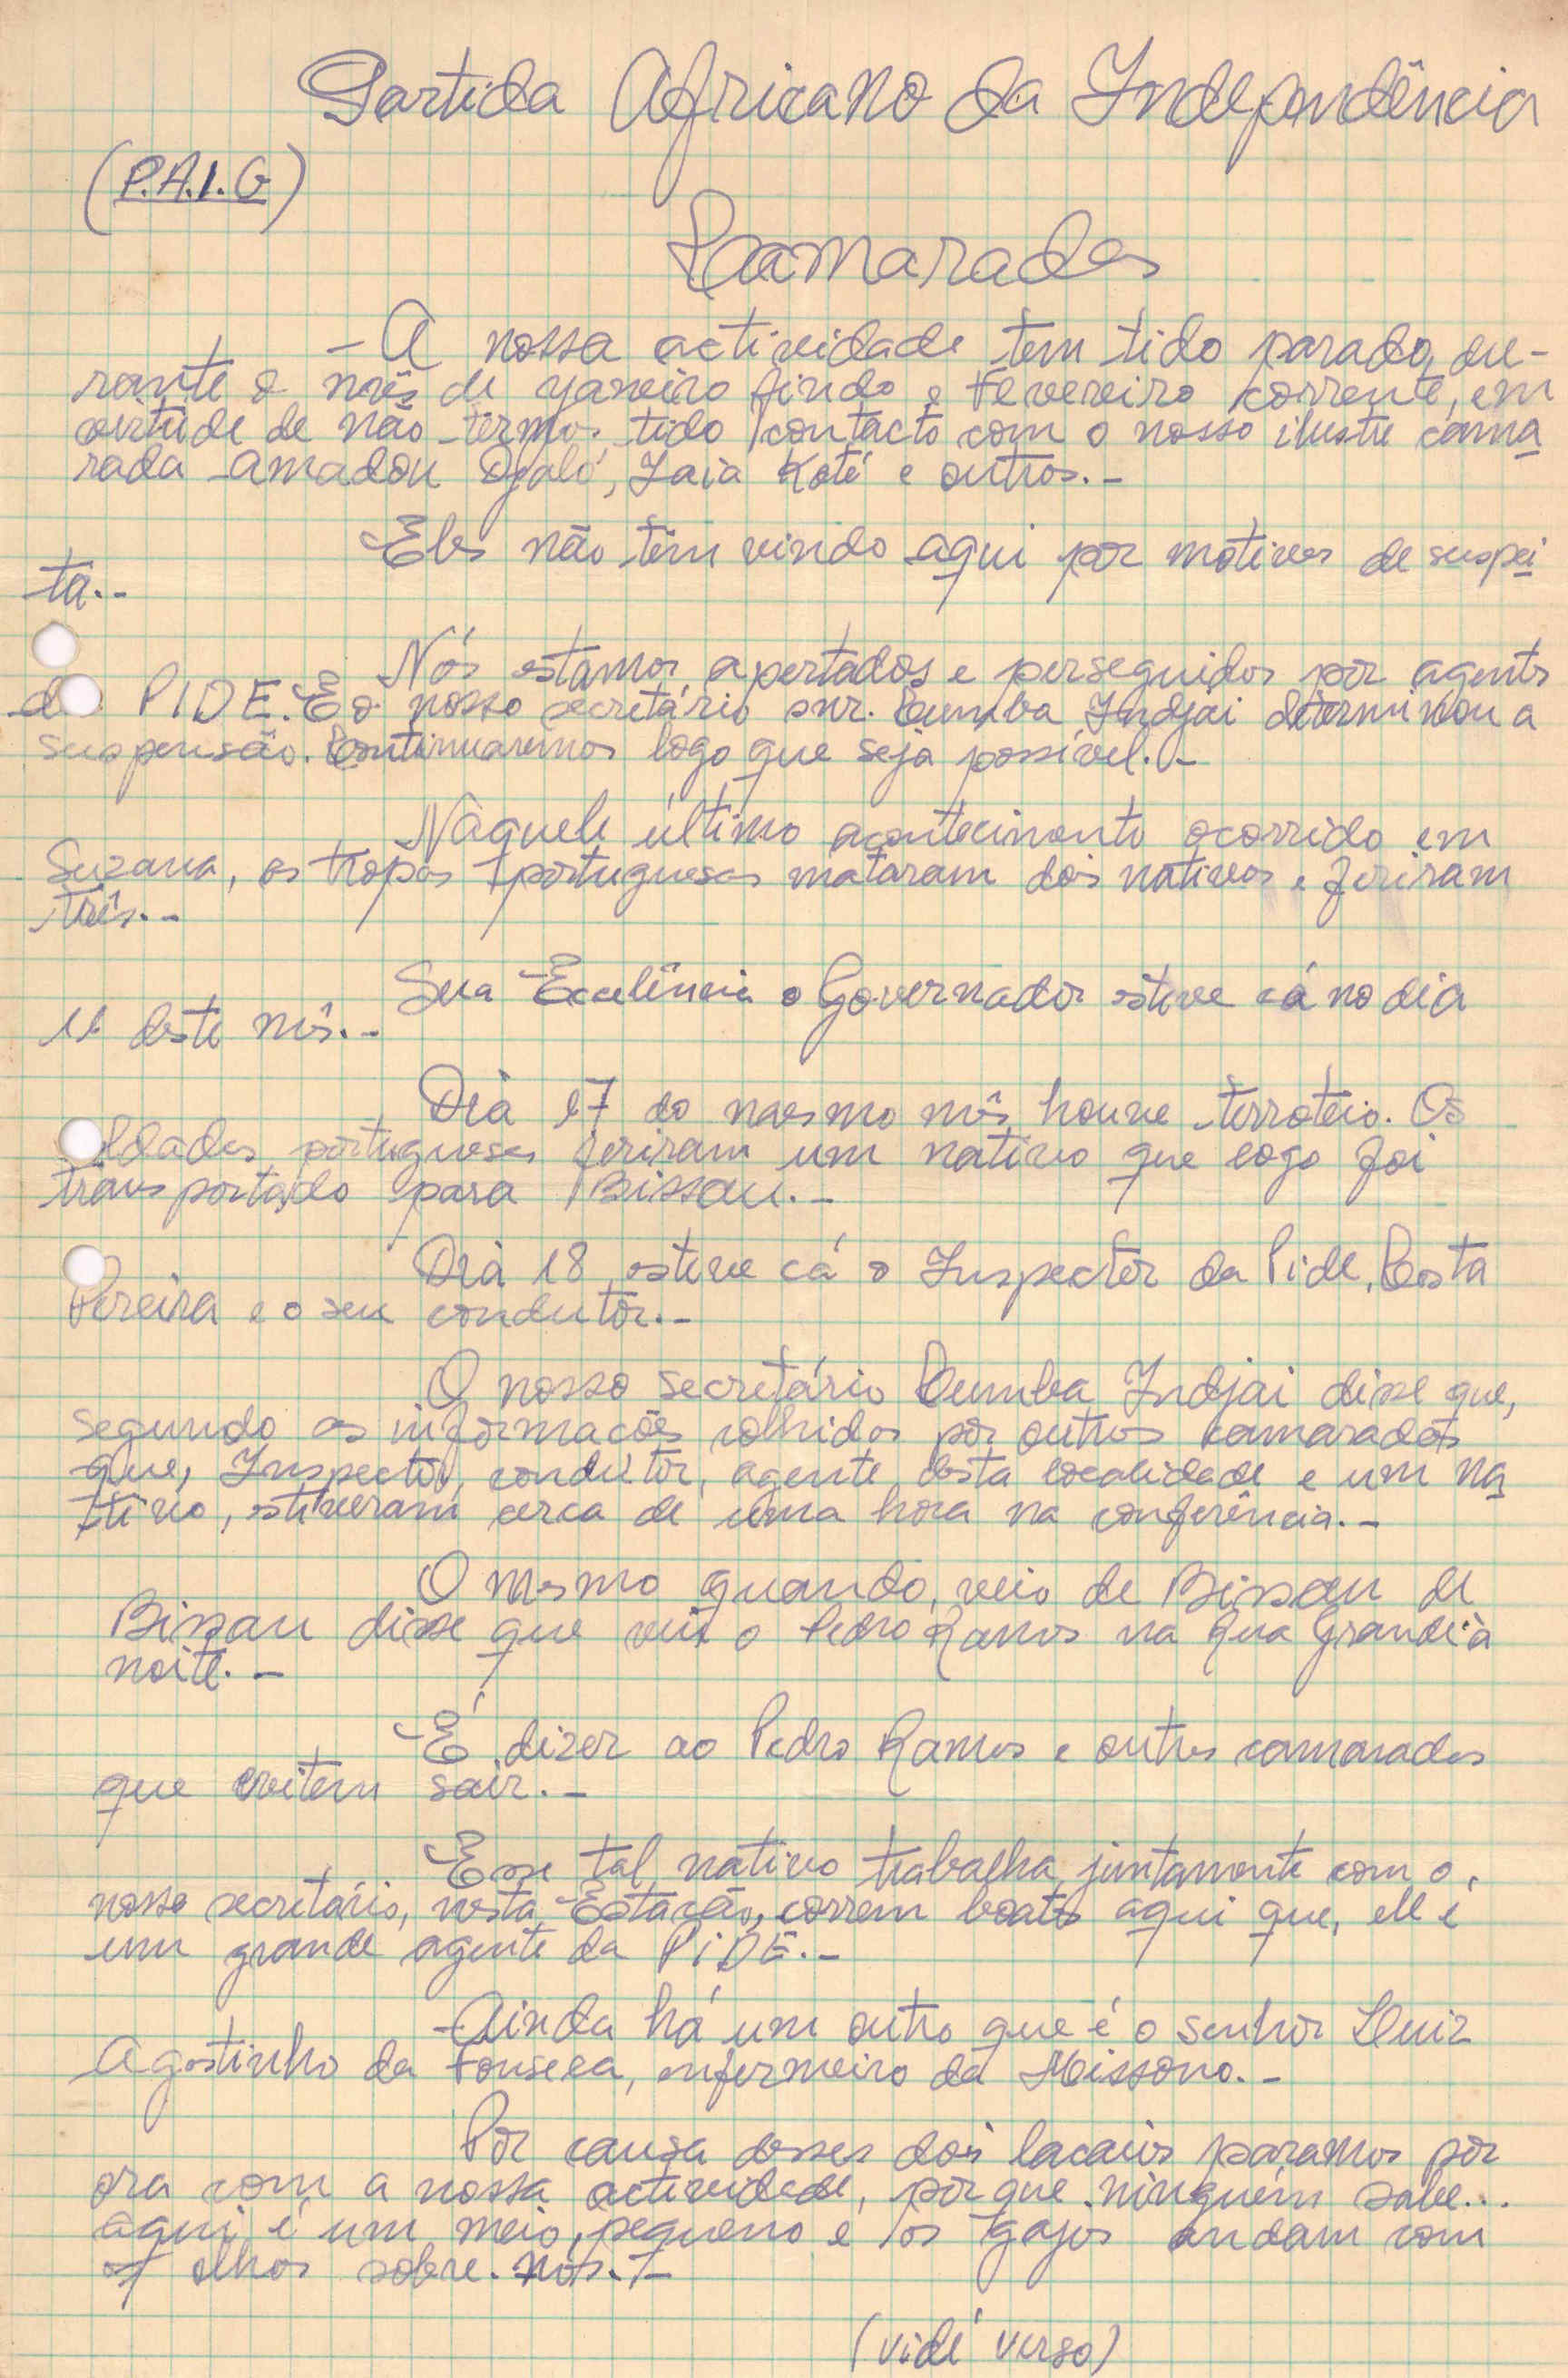 Partida Africano da Independência
(P.A.I.G)
Camaradas
– A nossa actividade tem tido parada, du-
rante o mês de Janeiro findo e Fevereiro corrente, em
virtude de não termos tido contacto com o nosso ilustre cama
rada Amadou Djaló, Iaia Koté e outros.–
Eles não têm vindo aqui por motivos de suspei
ta.–
Nós estamos apertados e perseguidos por agents
da PIDE. E o nosso secretário snr. Cumba Indjai determinou a
suspensão. Continuaremos logo que seja possível.–
Naquele último acontecimento ocorrido em
Suzana, as tropas portuguesas mataram dois nativos e feriram
três.–
Sua Excelência o Governador esteve cá no dia
11 deste mês.–
Dia 17 do mesmo mês houve terroteio. Os
ldados portugueses feriram um nativo que logo foi
transportado para Bissau.–
Dia 18, esteve cá o Inspector da Pide, Costa
Pereira e o seu condutor.–
O nosso secretário Cumba Indjai disse que,
segundo as informações colhidas por outros camaradas
que, Inspector, condutor, agente desta localidade e um na
tivo, estiveram cerca de uma hora na conferência.–
O mesmo quando, veio de Bissau de
Bissau disse que viu o Pedro Ramos na Rua Grande à
noite.–
É dizer ao Pedro Ramos e outros camaradas
que evitem sair.–
Esse tal nativo trabalha juntamente com o,
nosso secretário, nesta Estação, correm boatos aqui que, ele é
um grande agente da PIDE.–
Ainda há um outro que é o senhor Luiz
Agostinho da Fonseca, enfermeiro da Missono.–
Por causa desses dois lacaios paramos por
ora com a nossa actividade, porque ninguém sabe...
aqui é um meio pequeno e os gajos andam com
os olhos sobre nós.–
(vidé verso)